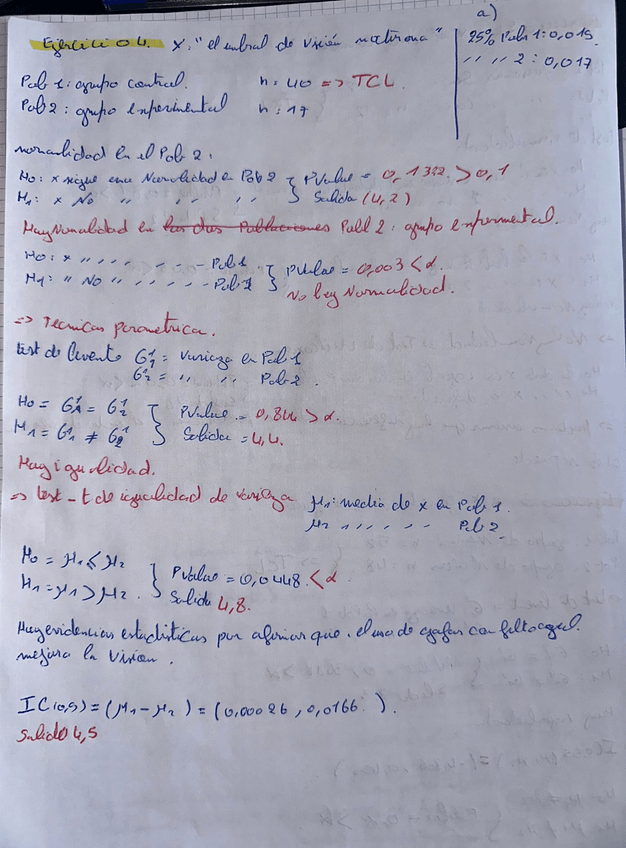 Ejercicio 04. X: "el umbral de visión nocturna"
a)
25% Pob 1: 0,015
" " " 2: 0,017
Pob 1: grupo control. n: 40 => TCL
Pob 2: grupo experimental n: 17
normalidad en el Pob 2:
H0: x sigue una Normalidad en Pob 2 } PValue = 0,1392 > 0,1
H1: x No " " " } Salida (4,2)
Hay Normalidad en los dos Poblaciones Pobl 2: grupo experimental.
H0: x " " " " - - - Pob 1 } PValue = 0,003 < α.
H1: " No " " - - - - Pob 1 } No hay Normalidad.
=> Tecnicas parametrica.
test de levento G²1 = Varianza en Pob 1
G²2 = " " Pob 2.
H0 = G²1 = G²2 } PValue = 0,844 > α.
H1 = G²1 ≠ G²2 } Salida = 4,4.
Hay igualidad.
=> test - t de igualidad de varianza
μ1: media de x en Pob 1.
μ2 " " " " Pob 2.
H0 = μ1 ≤ μ2 } PValue = 0,0448 < α
H1 = μ1 > μ2. } Salida 4,8.
Hay evidencias estadísticas por afirmar que el uso de gafas con filto azul.
mejora la Vision.
IC(0,9) = (μ1 - μ2) = (0,00026, 0,0166).
Salida 4,5